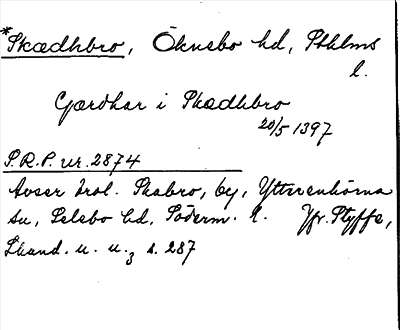 *Skædhbro, Öknebo hd, Sthlms
l.
Gærdhar i Skædhbro
20/5 1397
S.R.P. nr. 2874
Avser trol. Skabro, by, Ytterenhörna
sn, Selebo hd, Söderm. l. Jfr. Styffe,
Skand. u. u.3 s. 287